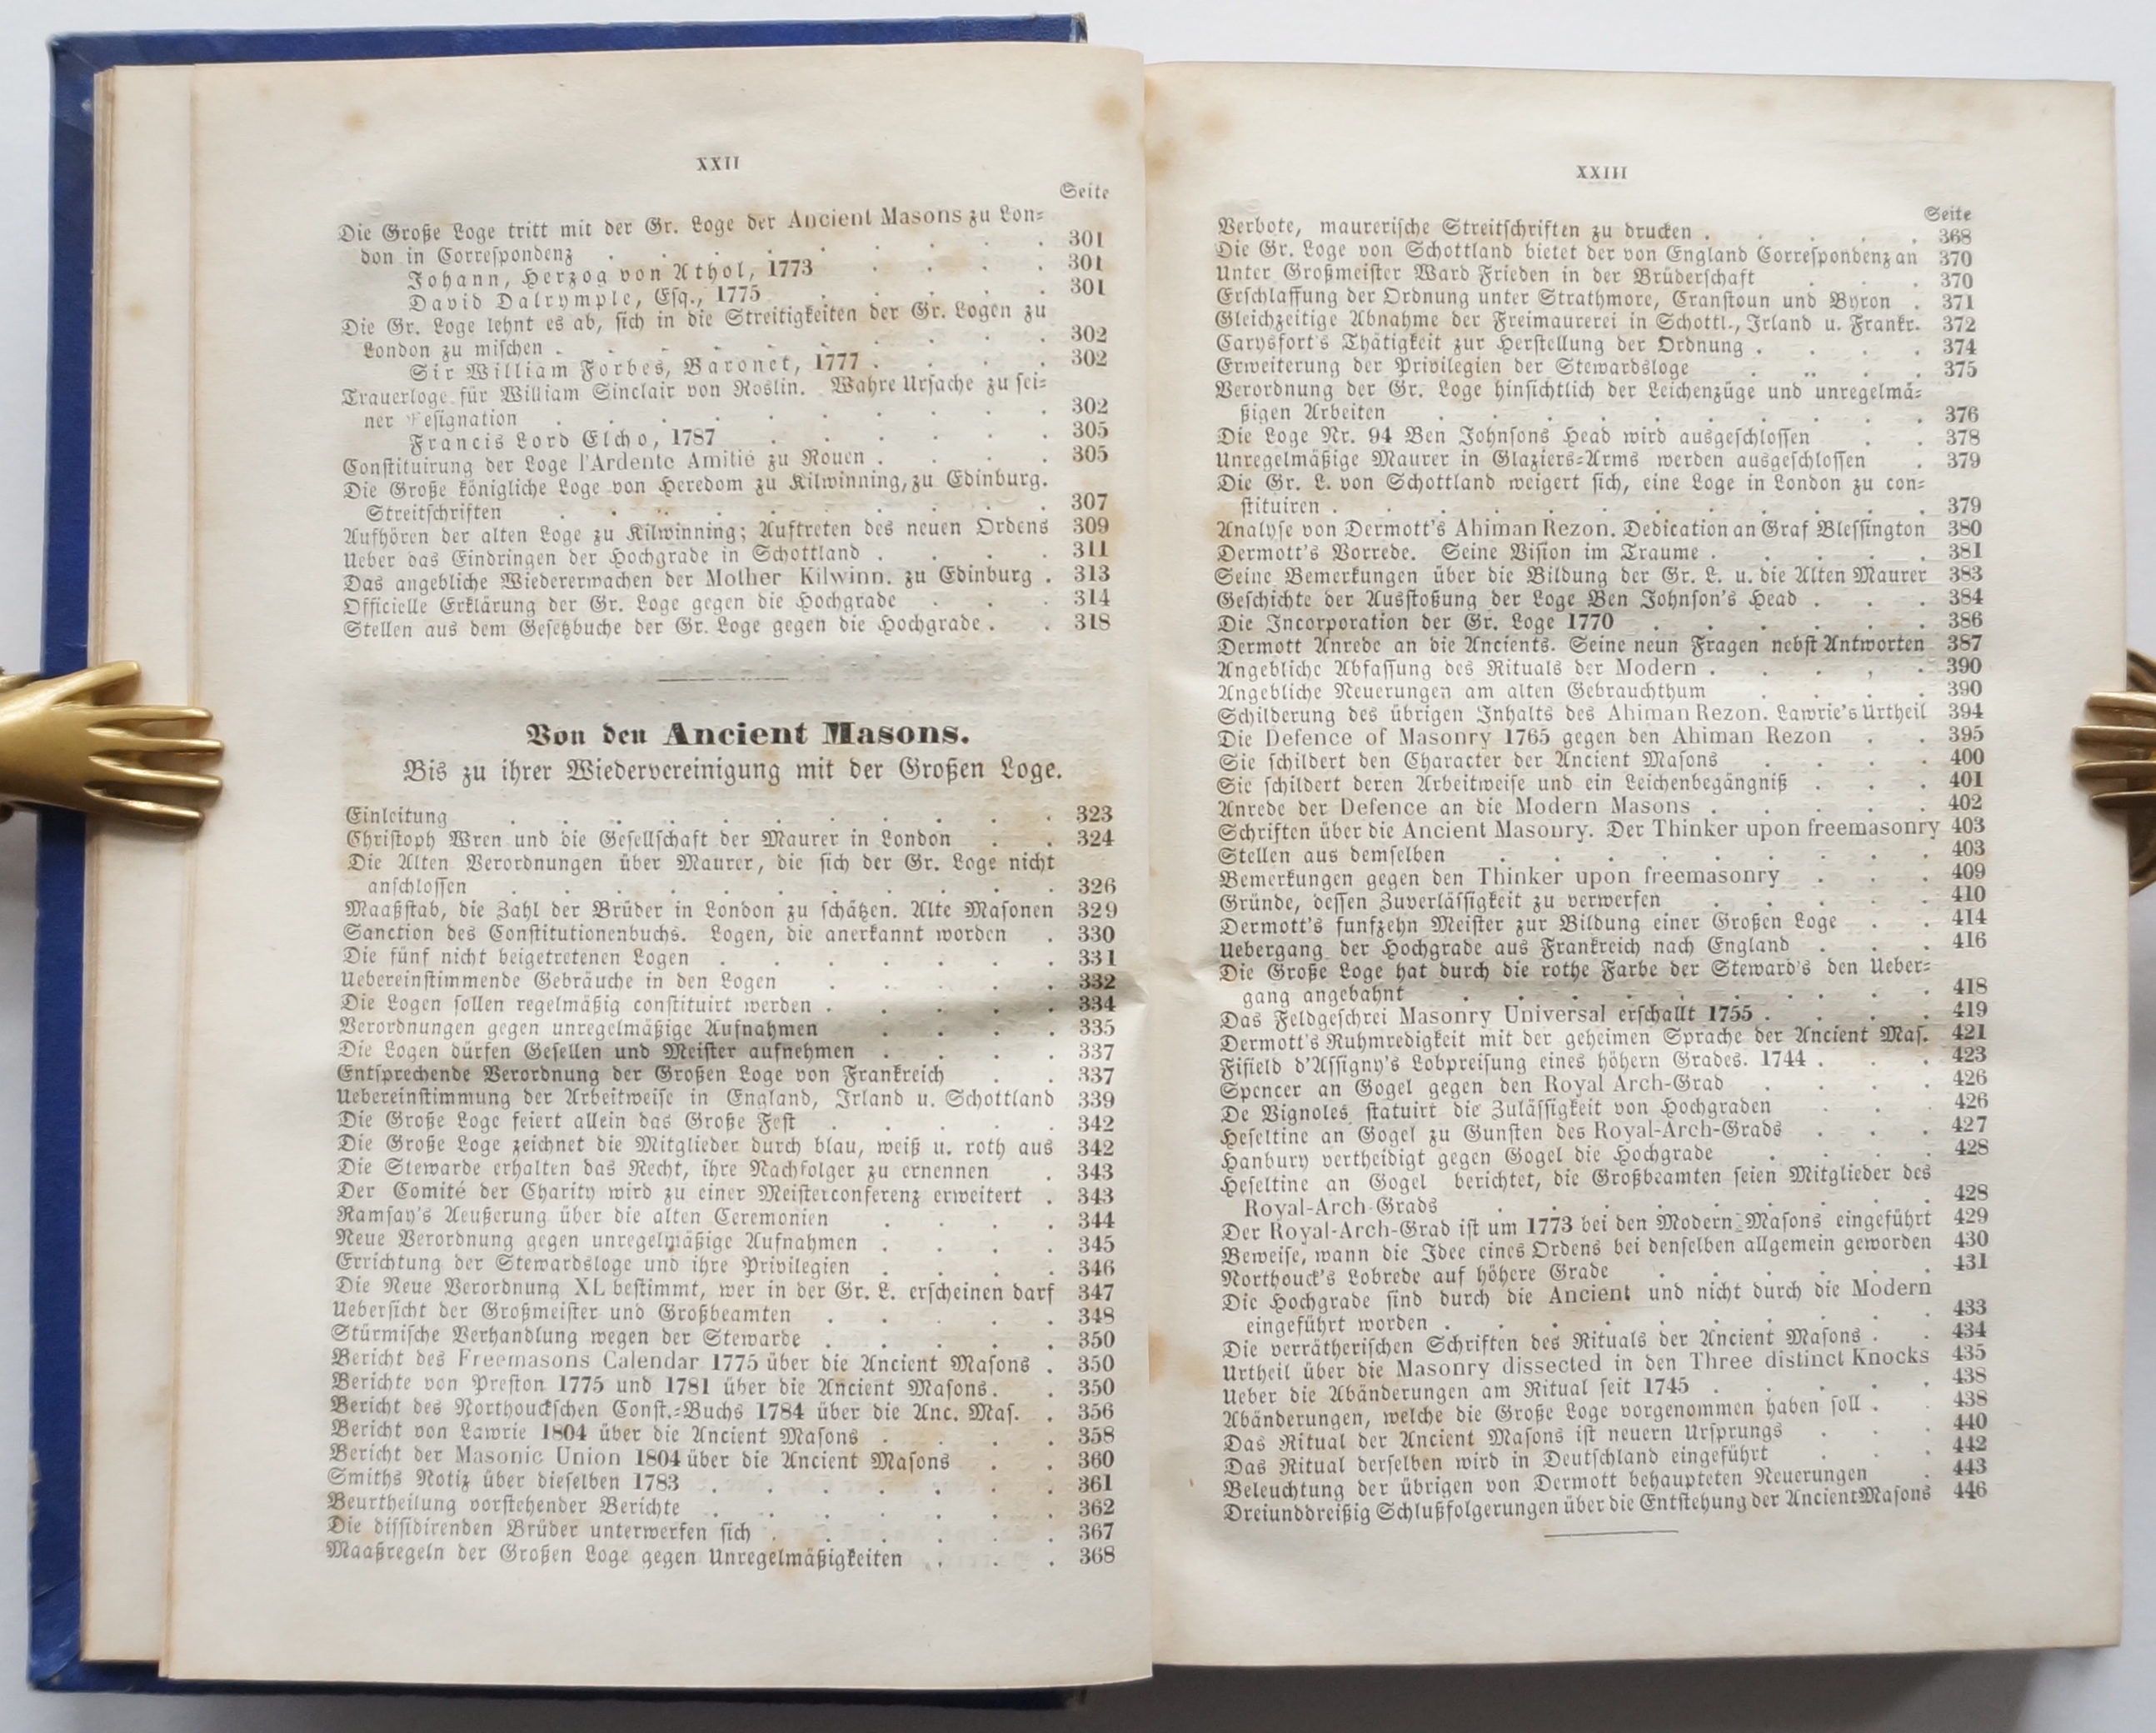 XXII
Seite
Die Große Loge tritt mit der Gr. Loge der Ancient Masons zu Lon-
don in Correspondenz . . . . . . . . . 301
Johann, Herzog von Athol, 1773 . . . . 301
David Dalrymple, Esq., 1775 . . . . . 301
Die Gr. Loge lehnt es ab, sich in die Streitigkeiten der Gr. Logen zu
London zu mischen . . . . . . . . . . 302
Sir William Forbes, Baronet, 1777 . . . . 302
Trauerloge für William Sinclair von Roslin. Wahre Ursache zu sei-
ner Resignation . . . . . . . . . . 302
Francis Lord Elcho, 1787 . . . . . . 305
Constituirung der Loge l'Ardente Amitié zu Rouen . . . . 305
Die Große königliche Loge von Heredom zu Kilwinning, zu Edinburg.
Streitschriften . . . . . . . . . . 307
Aufhören der alten Loge zu Kilwinning; Auftreten des neuen Ordens 309
Ueber das Eindringen der Hochgrade in Schottland . . . . 311
Das angebliche Wiedererwachen der Mother Kilwinn. zu Edinburg . 313
Officielle Erklärung der Gr. Loge gegen die Hochgrade . . . 314
Stellen aus dem Gesetzbuche der Gr. Loge gegen die Hochgrade . . 318
Von den Ancient Masons.
Bis zu ihrer Wiedervereinigung mit der Großen Loge.
Einleitung . . . . . . . . . . . 323
Christoph Wren und die Gesellschaft der Maurer in London . . 324
Die Alten Verordnungen über Maurer, die sich der Gr. Loge nicht
anschlossen . . . . . . . . . . . 326
Maaßstab, die Zahl der Brüder in London zu schätzen. Alte Masonen 329
Sanction des Constitutionenbuchs. Logen, die anerkannt worden . 330
Die fünf nicht beigetretenen Logen . . . . . . . 331
Uebereinstimmende Gebräuche in den Logen . . . . . 332
Die Logen sollen regelmäßig constituirt werden . . . . . 334
Verordnungen gegen unregelmäßige Aufnahmen . . . . 335
Die Logen dürfen Gesellen und Meister aufnehmen . . . . 337
Entsprechende Verordnung der Großen Loge von Frankreich . . 337
Uebereinstimmung der Arbeitweise in England, Irland u. Schottland 339
Die Große Loge feiert allein das Große Fest . . . . . 342
Die Große Loge zeichnet die Mitglieder durch blau, weiß u. roth aus 342
Die Stewarde erhalten das Recht, ihre Nachfolger zu ernennen . 343
Der Comité der Charity wird zu einer Meisterconferenz erweitert . 343
Ramsay's Aeußerung über die alten Ceremonien . . . . 344
Neue Verordnung gegen unregelmäßige Aufnahmen . . . . 345
Errichtung der Stewardsloge und ihre Privilegien . . . . 346
Die Neue Verordnung XL bestimmt, wer in der Gr. L. erscheinen darf 347
Uebersicht der Großmeister und Großbeamten . . . . . 348
Stürmische Verhandlung wegen der Stewarde . . . . . 350
Bericht des Freemasons Calendar 1775 über die Ancient Masons . 350
Berichte von Preston 1775 und 1781 über die Ancient Masons. . 350
Bericht des Northouckschen Const.-Buchs 1784 über die Anc. Mas. . 356
Bericht von Lawrie 1804 über die Ancient Masons . . . . 358
Bericht der Masonic Union 1804 über die Ancient Masons . . 360
Smiths Notiz über dieselben 1783 . . . . . . . 361
Beurtheilung vorstehender Berichte . . . . . . . 362
Die dissidirenden Brüder unterwerfen sich . . . . . . 367
Maaßregeln der Großen Loge gegen Unregelmäßigkeiten . . . 368
XXIII
Seite
Verbote, maurerische Streitschriften zu drucken . . . . . 368
Die Gr. Loge von Schottland bietet der von England Correspondenz an 370
Unter Großmeister Ward Frieden in der Brüderschaft . . . 370
Erschlaffung der Ordnung unter Strathmore, Cranstoun und Byron . 371
Gleichzeitige Abnahme der Freimaurerei in Schottl., Irland u. Frankr. 372
Carysfort's Thätigkeit zur Herstellung der Ordnung . . . . 374
Erweiterung der Privilegien der Stewardsloge . . . . 375
Verordnung der Gr. Loge hinsichtlich der Leichenzüge und unregelmä-
ßigen Arbeiten . . . . . . . . . . 376
Die Loge Nr. 94 Ben Johnsons Head wird ausgeschlossen . . 378
Unregelmäßige Maurer in Glaziers-Arms werden ausgeschlossen . 379
Die Gr. L. von Schottland weigert sich, eine Loge in London zu con-
stituiren . . . . . . . . . . . . 379
Analyse von Dermott's Ahiman Rezon. Dedication an Graf Blessington 380
Dermott's Vorrede. Seine Vision im Traume . . . . . 381
Seine Bemerkungen über die Bildung der Gr. L. u. die Alten Maurer 383
Geschichte der Ausstoßung der Loge Ben Johnson's Head . . . 384
Die Incorporation der Gr. Loge 1770 . . . . . . 386
Dermott Anrede an die Ancients. Seine neun Fragen nebst Antworten 387
Angebliche Abfassung des Rituals der Modern . . . . . 390
Angebliche Neuerungen am alten Gebrauchthum . . . . 390
Schilderung des übrigen Inhalts des Ahiman Rezon. Lawrie's Urtheil 394
Die Defence of Masonry 1765 gegen den Ahiman Rezon . . 395
Sie schildert den Character der Ancient Masons . . . . 400
Sie schildert deren Arbeitweise und ein Leichenbegängniß . . . 401
Anrede der Defence an die Modern Masons . . . . . 402
Schriften über die Ancient Masonry. Der Thinker upon freemasonry 403
Stellen aus demselben . . . . . . . . . 403
Bemerkungen gegen den Thinker upon freemasonry . . . 409
Gründe, dessen Zuverlässigkeit zu verwerfen . . . . . 410
Dermott's funfzehn Meister zur Bildung einer Großen Loge . . 414
Uebergang der Hochgrade aus Frankreich nach England . . . 416
Die Große Loge hat durch die rothe Farbe der Steward's den Ueber-
gang angebahnt . . . . . . . . . . 418
Das Feldgeschrei Masonry Universal erschallt 1755 . . . . 419
Dermott's Ruhmredigkeit mit der geheimen Sprache der Ancient Mas. 421
Fifield d'Assigny's Lobpreisung eines höhern Grades. 1744 . . . 423
Spencer an Gogel gegen den Royal Arch-Grad . . . . 426
De Vignoles statuirt die Zulässigkeit von Hochgraden . . . 426
Heseltine an Gogel zu Gunsten des Royal-Arch-Grads . . . 427
Hanbury vertheidigt gegen Gogel die Hochgrade . . . . 428
Heseltine an Gogel berichtet, die Großbeamten seien Mitglieder des
Royal-Arch-Grads . . . . . . . . . 428
Der Royal-Arch-Grad ist um 1773 bei den Modern-Masons eingeführt 429
Beweise, wann die Idee eines Ordens bei denselben allgemein geworden 430
Northouck's Lobrede auf höhere Grade . . . . . . 431
Die Hochgrade sind durch die Ancient und nicht durch die Modern
eingeführt worden . . . . . . . . . . 433
Die verrätherischen Schriften des Rituals der Ancient Masons . . 434
Urtheil über die Masonry dissected in den Three distinct Knocks 435
Ueber die Abänderungen am Ritual seit 1745 . . . . . 438
Abänderungen, welche die Große Loge vorgenommen haben soll . . 438
Das Ritual der Ancient Masons ist neuern Ursprungs . . . 440
Das Ritual derselben wird in Deutschland eingeführt . . . 442
Beleuchtung der übrigen von Dermott behaupteten Neuerungen . 443
Dreiunddreißig Schlußfolgerungen über die Entstehung der Ancient Masons 446